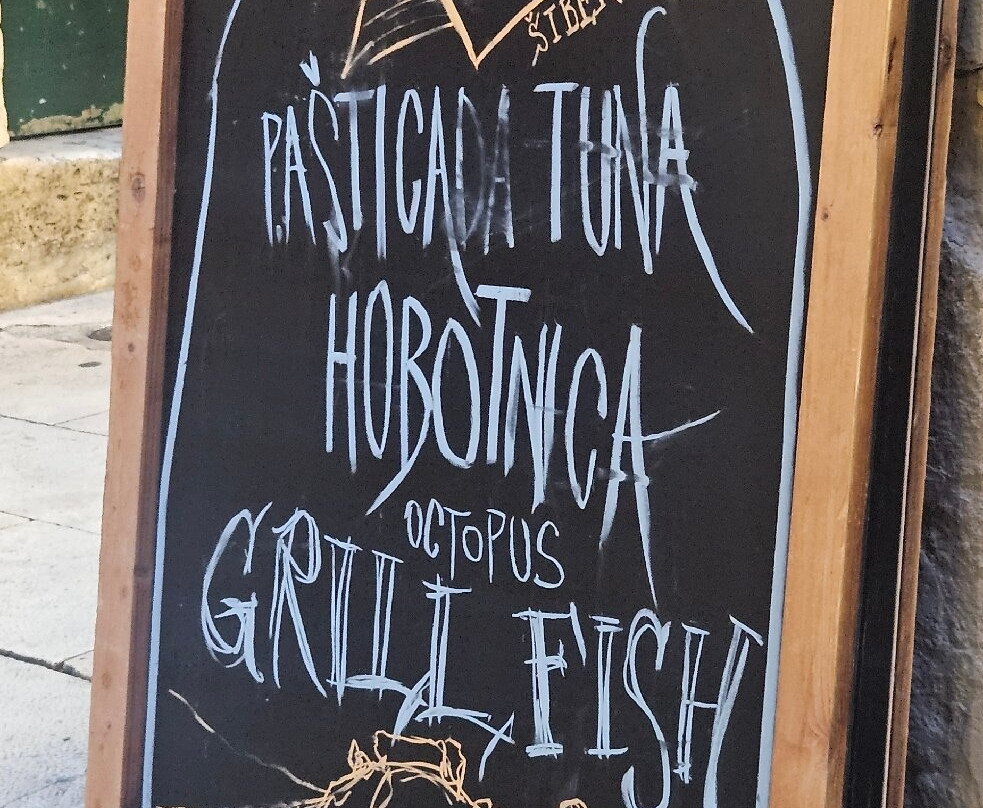 PAŠTICADA TUNA
HOBOTNICA
OCTOPUS
GRILL FISH